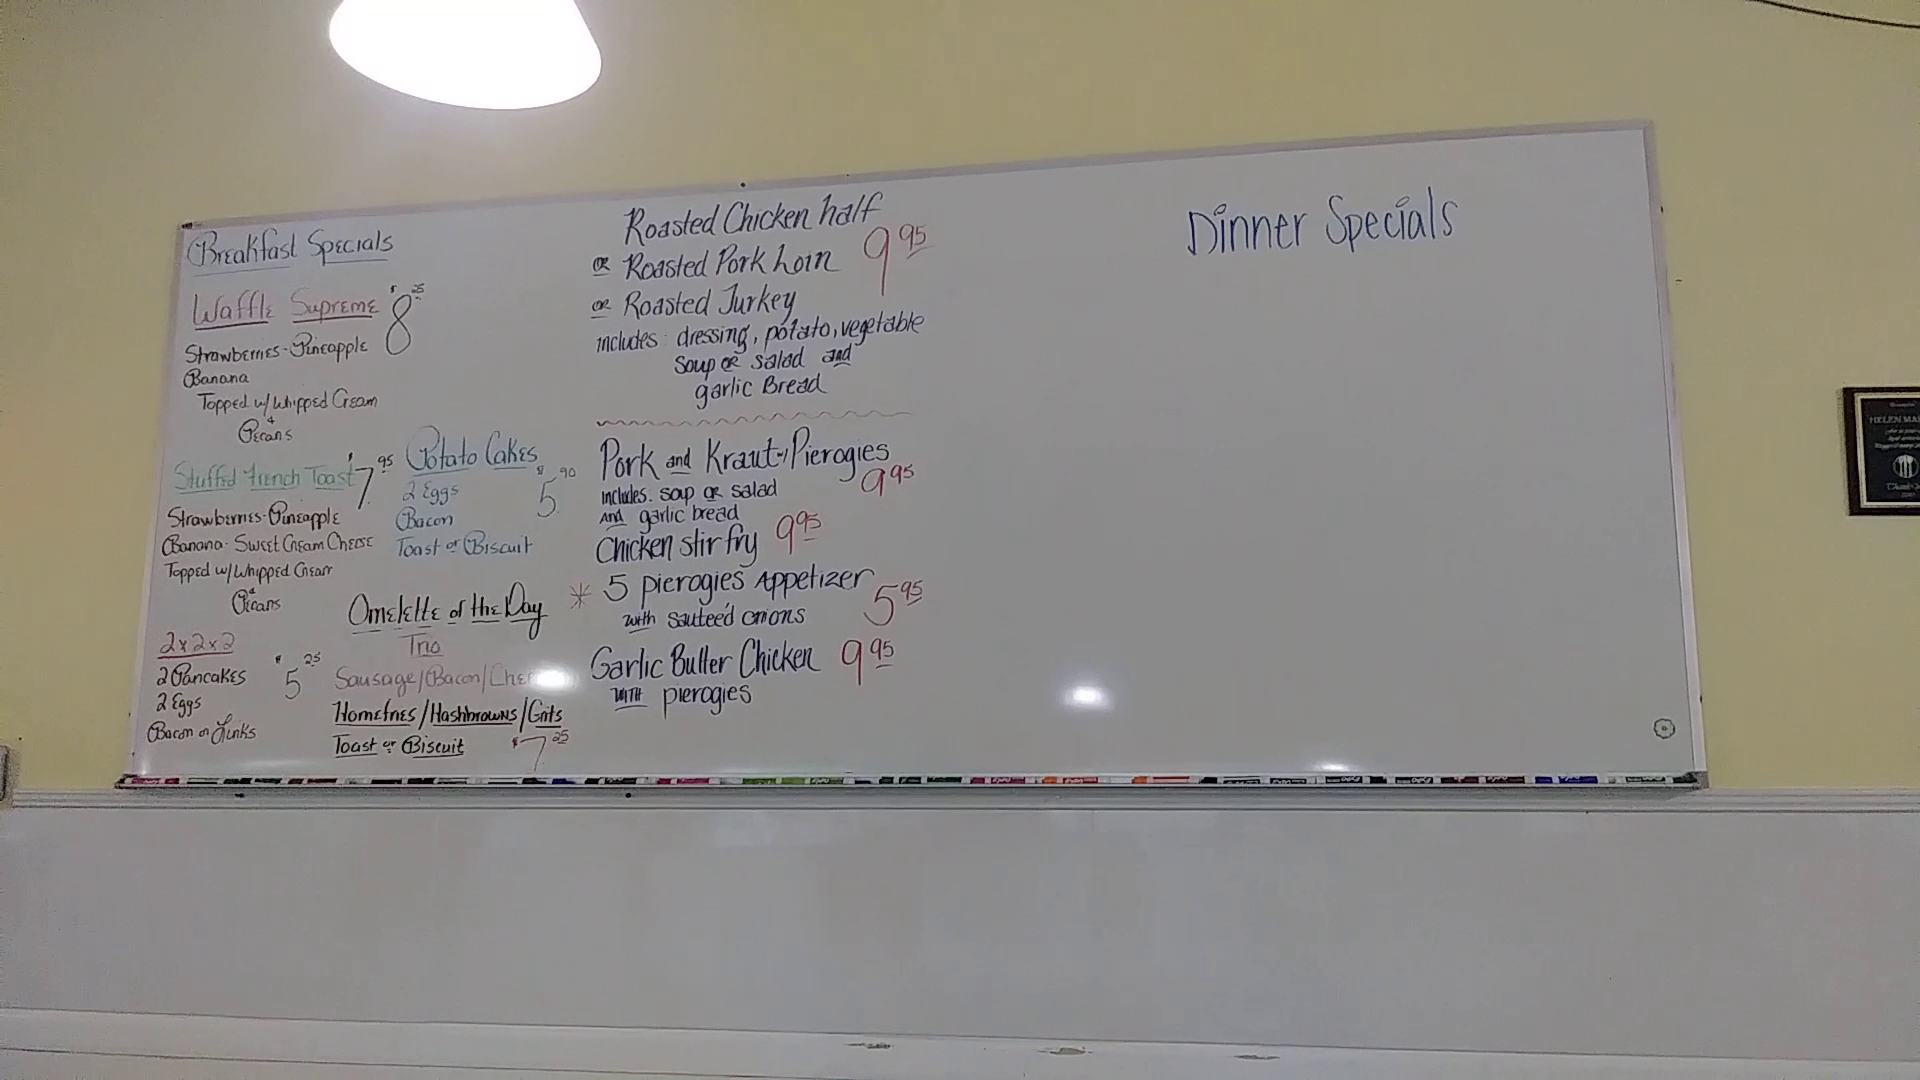 Breakfast Specials
Waffle Supreme $8 25
Strawberries-Pineapple
Banana
Topped w/ Whipped Cream
&
Pecans
Stuffed French Toast $7 95
Strawberries-Pineapple
Banana-Sweet Cream Cheese
Topped w/ Whipped Cream
&
Pecans
2x2x2
2 Pancakes $5 25
2 Eggs
Bacon or Links
Potato Cakes
2 Eggs $5 90
Bacon
Toast or Biscuit
Omelette of the Day
Trio
Sausage/Bacon/
Homefries/Hashbrowns/Grits
Toast or Biscuit $7 25
Roasted Chicken half
or Roasted Pork Loin 9 95
or Roasted Turkey
includes: dressing, potato, vegetable
soup or salad and
garlic Bread
Pork and Kraut w/ Pierogies
includes: soup or salad 9 95
and garlic bread
Chicken stir fry 9 95
* 5 pierogies Appetizer
with sauteé'd onions 5 95
Garlic Butter Chicken 9 95
with pierogies
Dinner Specials
HELEN